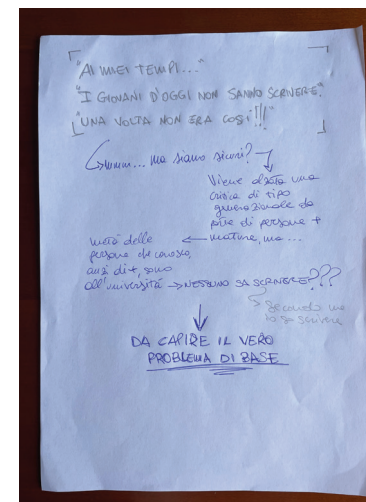 "AI MIEI TEMPI..."
"I GIOVANI D'OGGI NON SANNO SCRIVERE".
"UNA VOLTA NON ERA COSÌ!!!"
↳ mmm... ma siamo sicuri?
Viene alzata una
critica di tipo
generazionale da
parte di persone +
mature, ma ...
metà delle
persone che conosco,
anzi di +, sono
all'università → NESSUNO SA SCRIVERE???
secondo me
lo so scrivere
DA CAPIRE IL VERO
PROBLEMA DI BASE